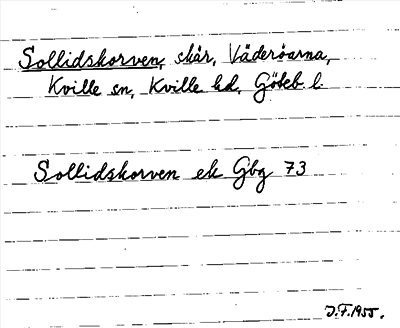 Sollidskorven, skär, Väderöarna,
Kville sn, Kville hd, Göteb l.
Sollidskorven ek Gbg 73
J.F. 1955.